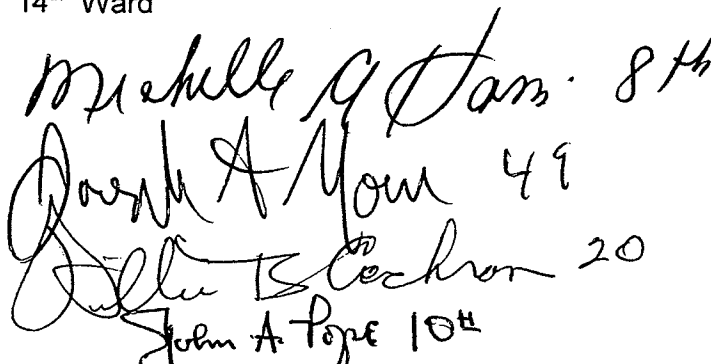 14th Ward
Michelle A Harris 8th
Joseph A Moore 49
Willie B Cochran 20
John A. Pope 10TH